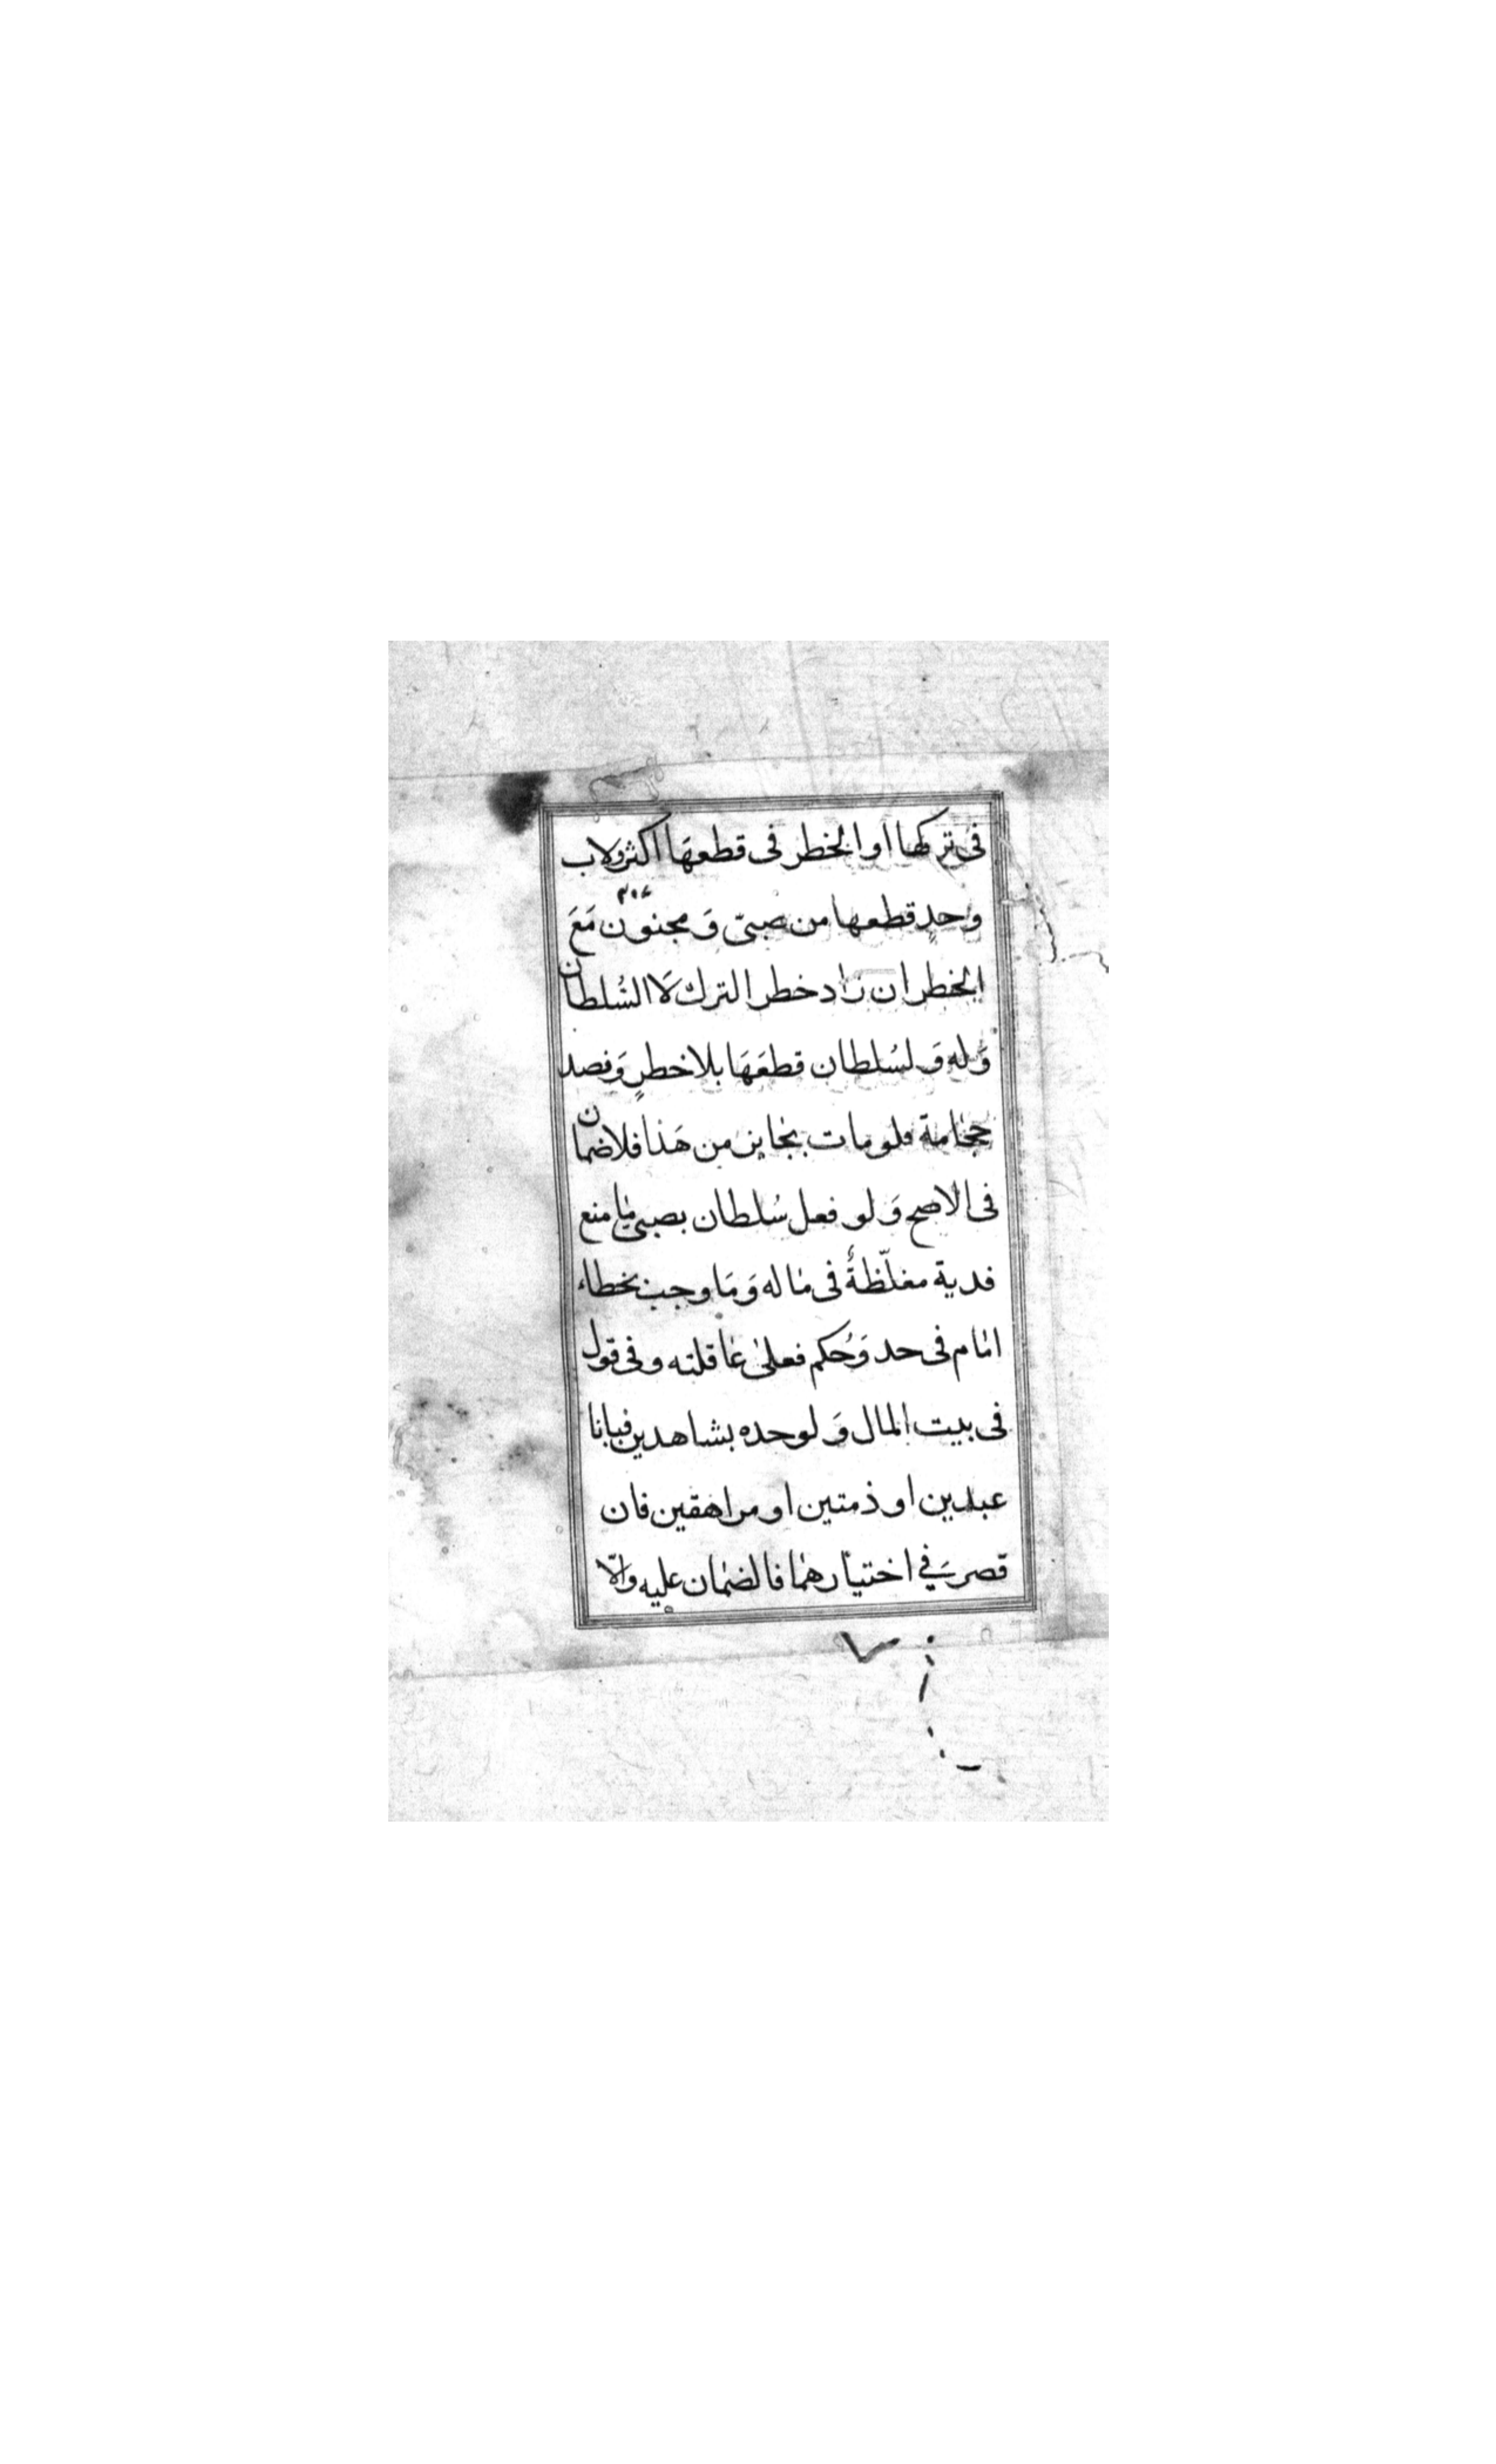 فى تركها او الخطر فى قطعهَا اكثر ولاب
وحدٍ قطعها من صبىّ وَ مجنوٌن مَعَ
الخطر ان زاد خطر الترك لَا السُلطان
وَله وَ لسُلطان قطعَهَا بلا خطرٍ وَفصد
حجامة فلو مات بجايز من هَذا فلا ضمان
فى الاصح وَ لو فعل سُلطان بصبى ما منع
فدية مغلّظةٌ فى ماله وَ مَا وجب بخطاء
امام فى حد وَحُكم فعلى عاقلته و فى قول
فى بيت المال وَ لو حده بشاهدين فبانا
عبدين او ذمتين او مراهقين فان
قصرَ في اختيارهما فالضمان عليه وَالّا